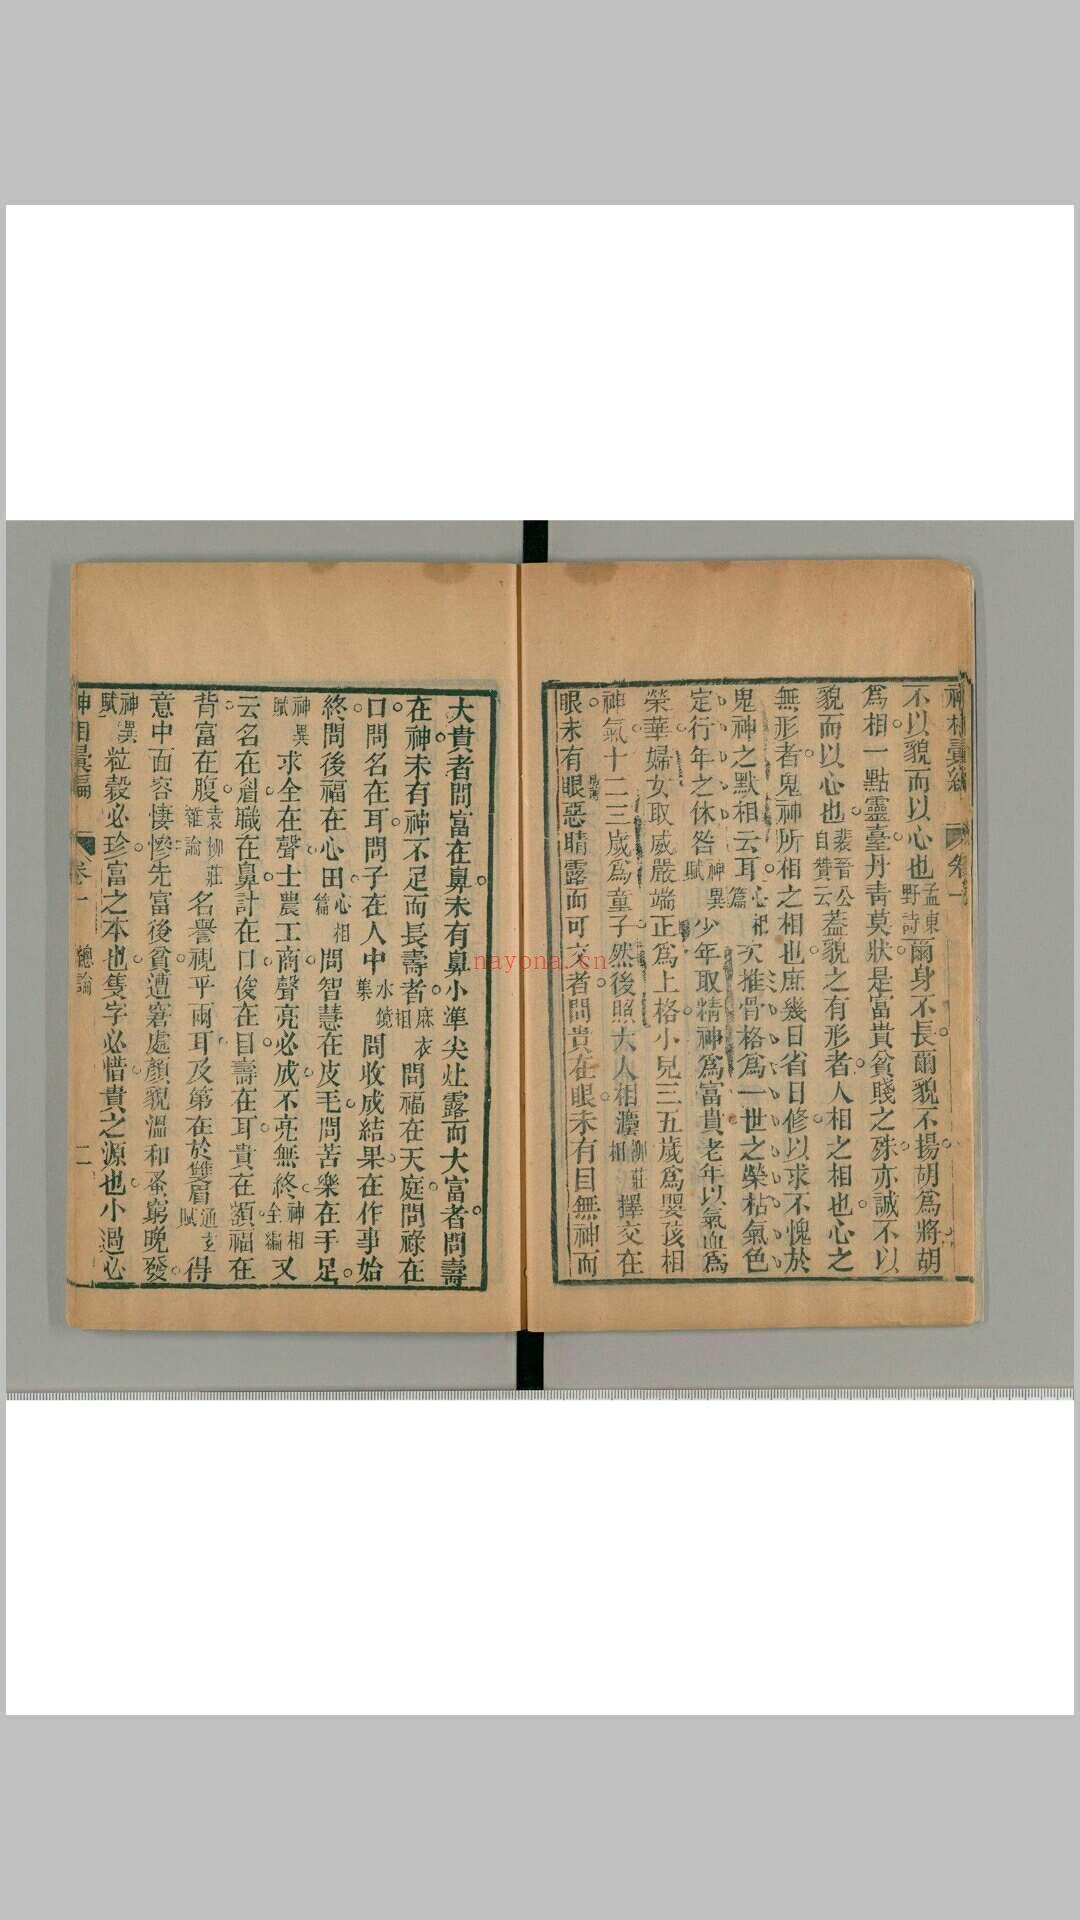 神相彙編　卷一
不以貌而以心也孟東野詩爾身不長爾貌不揚胡爲將胡
爲相一點靈臺丹靑莫狀是富貴貧賤之殊亦誠不以
貌而以心也裴晉公自贊云蓋貌之有形者人相之相也心之
無形者鬼神所相之相也庶幾日省日修以求不愧於
鬼神之默相云耳心相篇次推骨格爲一世之榮枯氣色
定行年之休咎神異賦少年取精神爲富貴老年以氣血爲
榮華婦女取威嚴端正爲上格小兒三五歲爲嬰孩相
神氣十二三歲爲童子然後照大人相灋柳莊相擇交在
眼未有眼惡睛露而可交者問貴在眼未有目無神而
大貴者問富在鼻未有鼻小準尖灶露而大富者問壽
在神未有神不足而長壽者麻衣相問福在天庭問祿在
口問名在耳問子在人中水鏡集問收成結果在作事始
終問後福在心田心相篇問智慧在皮毛問苦樂在手足
神異賦求全在聲士農工商聲亮必成不亮無終神相全編又
云名在眉職在鼻計在口俊在目壽在耳貴在額福在
背富在腹袁柳莊雜論名譽視乎兩耳及第在於雙眉通玄賦得
意中面容悽慘先富後貧遭窘處顏貌溫和蚤窮晚發
神異賦粒穀必珍富之本也隻字必惜貴之源也小過必
神相彙編　卷一　總論　二
nayona.cn